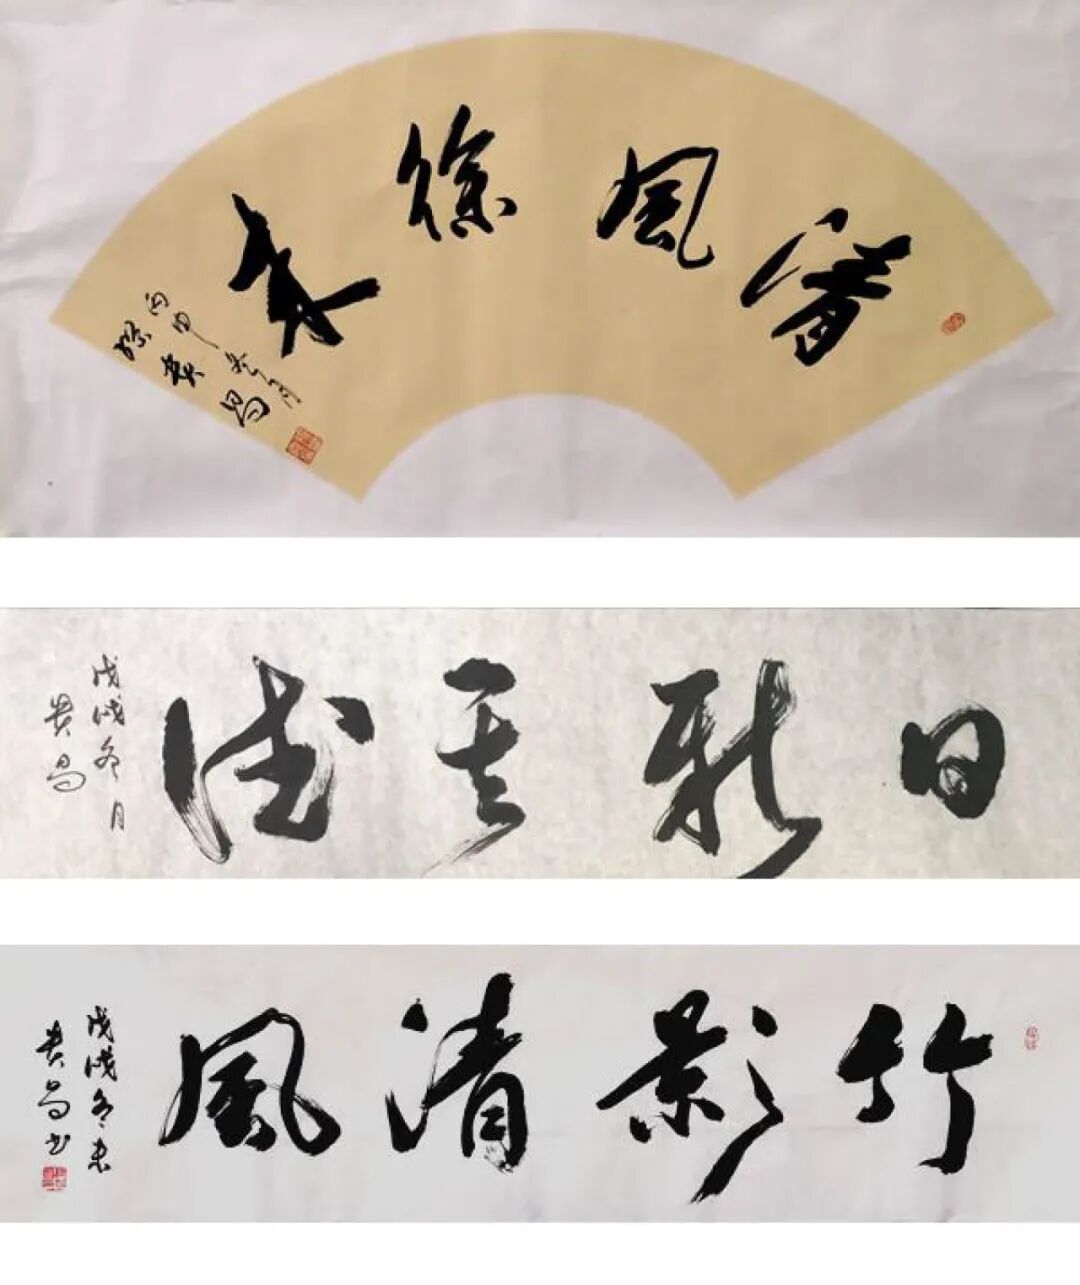 清風徐来
丙申
貴昌
日新其德
戊戌冬月
貴昌
竹影清風
戊戌冬末
貴昌书